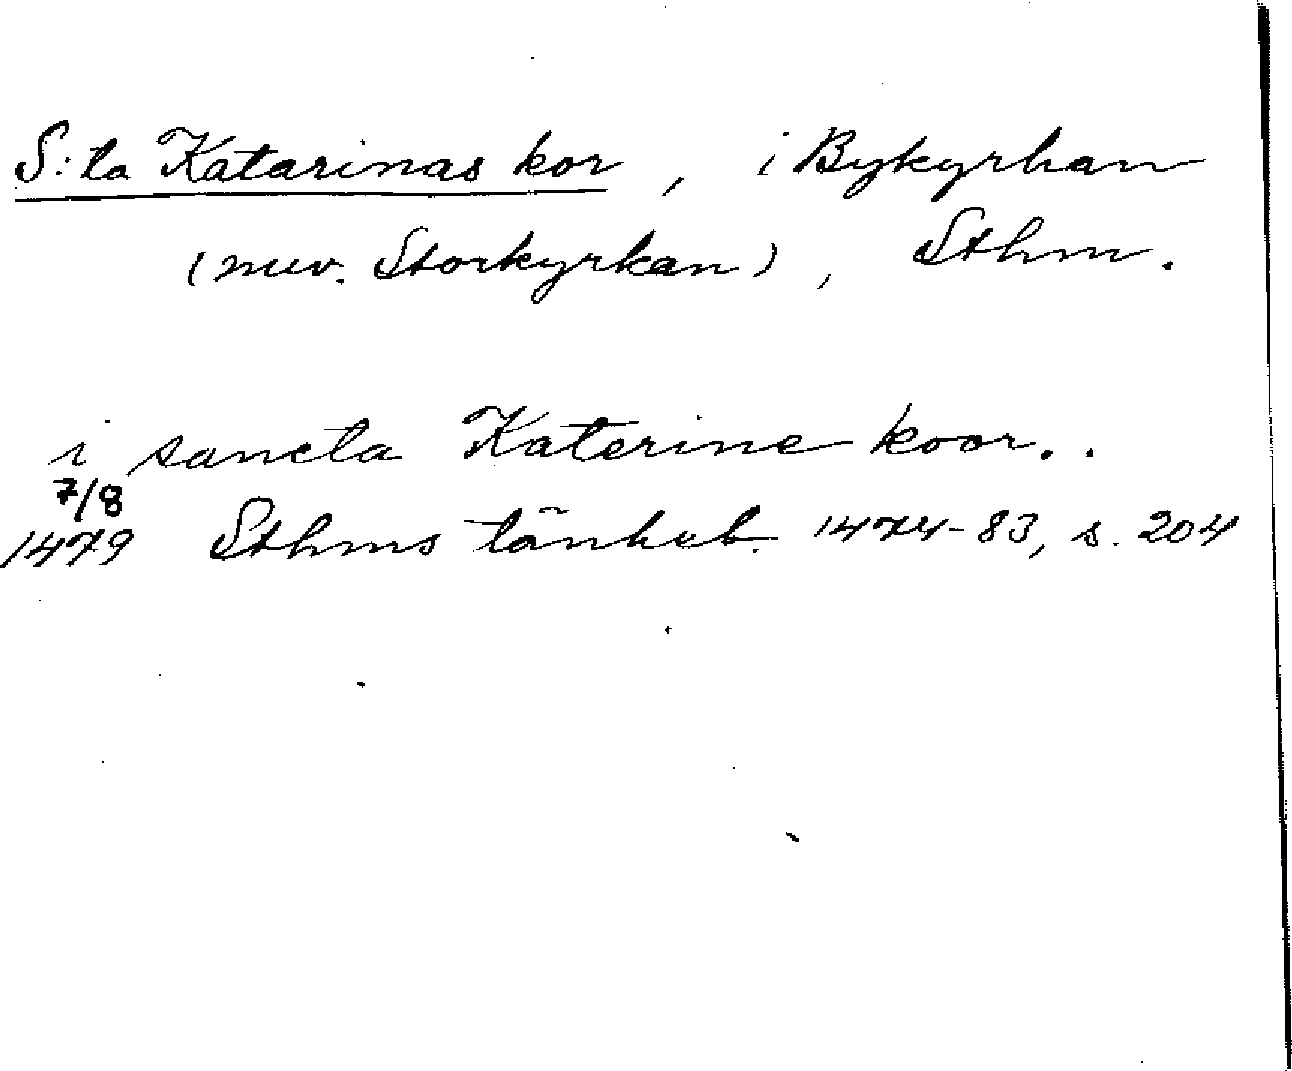 S:ta Katarinas kor, i Bykyrkan
(nuv. Storkyrkan), Sthm.
i sancta Katerine koor..
7/8
1479 Sthms tänkeb. 1474-83, s. 204